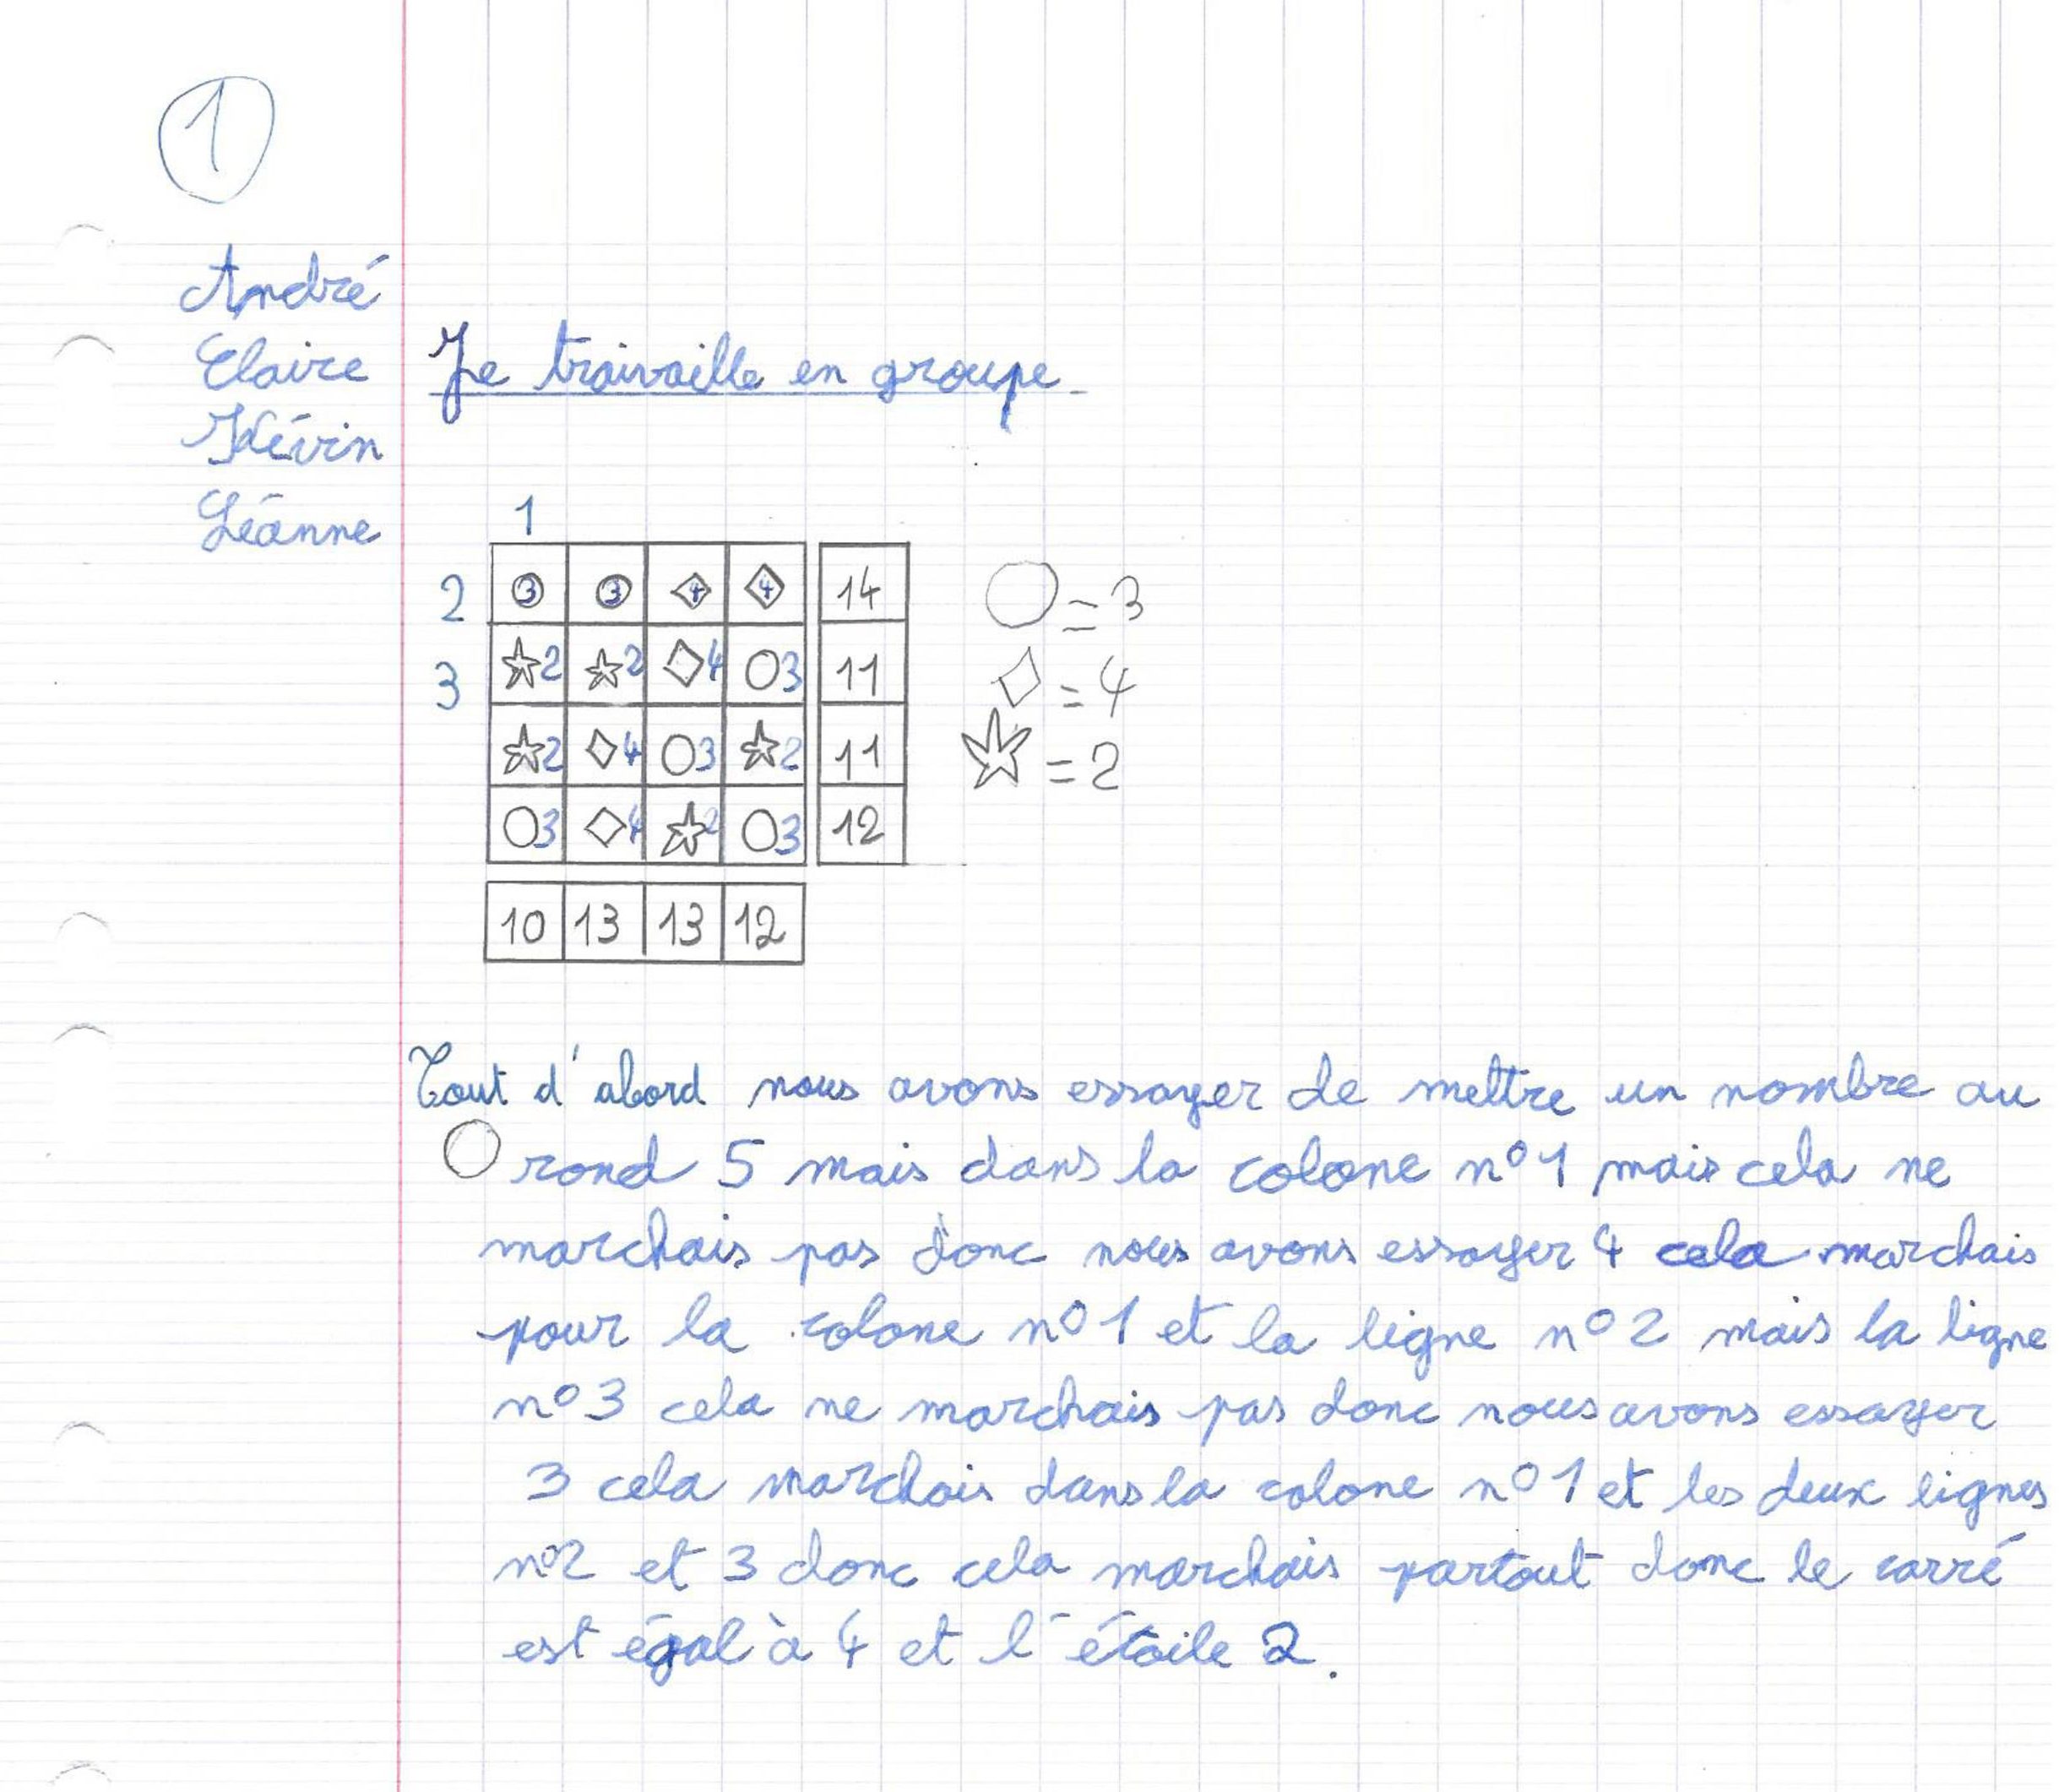 1
André
Claire
Kévin
Léanne
Je traivaille en groupe
1
2 3 3 4 4 14
3 2 2 4 3 11
2 4 3 2 11
3 4 2 3 12
10 13 13 12
= 3
= 4
= 2
Tout d'abord nous avons essayer de mettre un nombre au
rond 5 mais dans la colone n°1 mais cela ne
marchais pas donc nous avons essayer 4 cela marchais
pour la colone n°1 et la ligne n°2 mais la ligne
n°3 cela ne marchais pas donc nous avons essayer
3 cela marchais dans la colone n°1 et les deux lignes
n°2 et 3 donc cela marchais partout donc le carré
est égal à 4 et l'étoile 2.